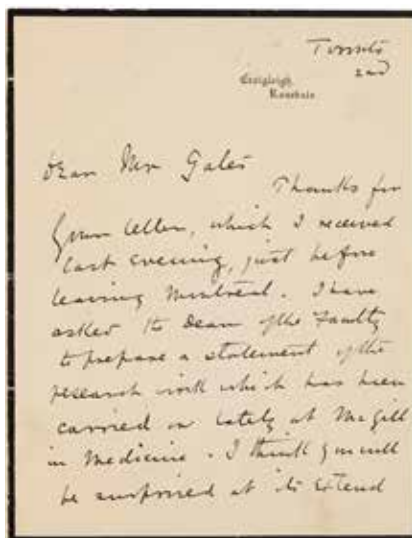 Toronto
2nd
Craigleigh,
Rosedale.
Dear Mr Gates
Thanks for
your letter, which I received
last evening, just before
leaving Montreal. I have
asked the Dean of the Faculty
to prepare a statement of the
research work which has been
carried on lately at McGill
in Medicine. I think you will
be surprised at its extend